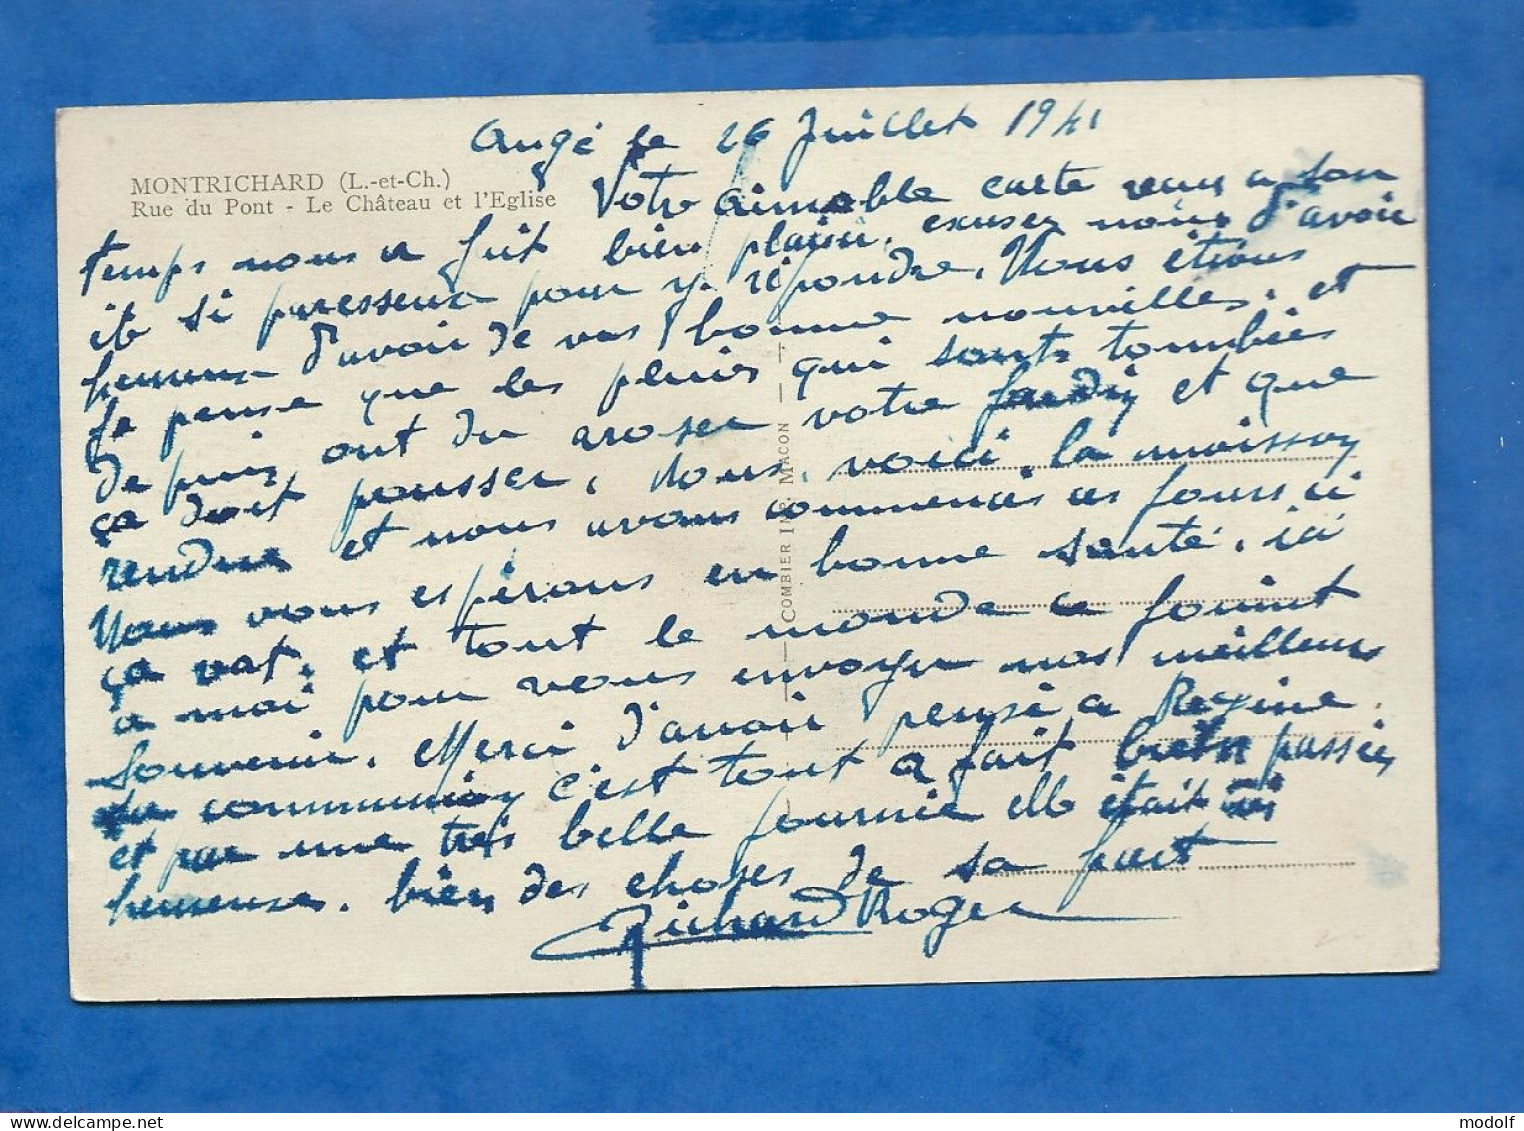 Angé le 26 Juillet 1941
MONTRICHARD (L.-et-Ch.)
Rue du Pont - Le Château et l'Eglise
Votre aimable carte venu a son
temps nous a fait bien plaisir, excusez nous d'avoir
été si paresseux pour y répondre. Nous étions
heureux d'avoir de vos bonne nouvelles, et
Je pense que les pluies qui sont tombées
depuis, ont du aroser votre Jardin et que
ça doit pousser, Nous, voici, la moisson
rendue et nous avons commencés ces Jours ci
Nous vous espérons en bonne santé, ici
ça vat, et tout le monde ce Joint
a moi pour vous envoyer nos meilleurs
Souvenir. Merci d'avoir pensé a Regine.
communion c'est tout a fait bien passée
et par une très belle Journée elle était
heureuse. bien des choses de sa part
Richard Roger
COMBIER IMP. MACON
modolf